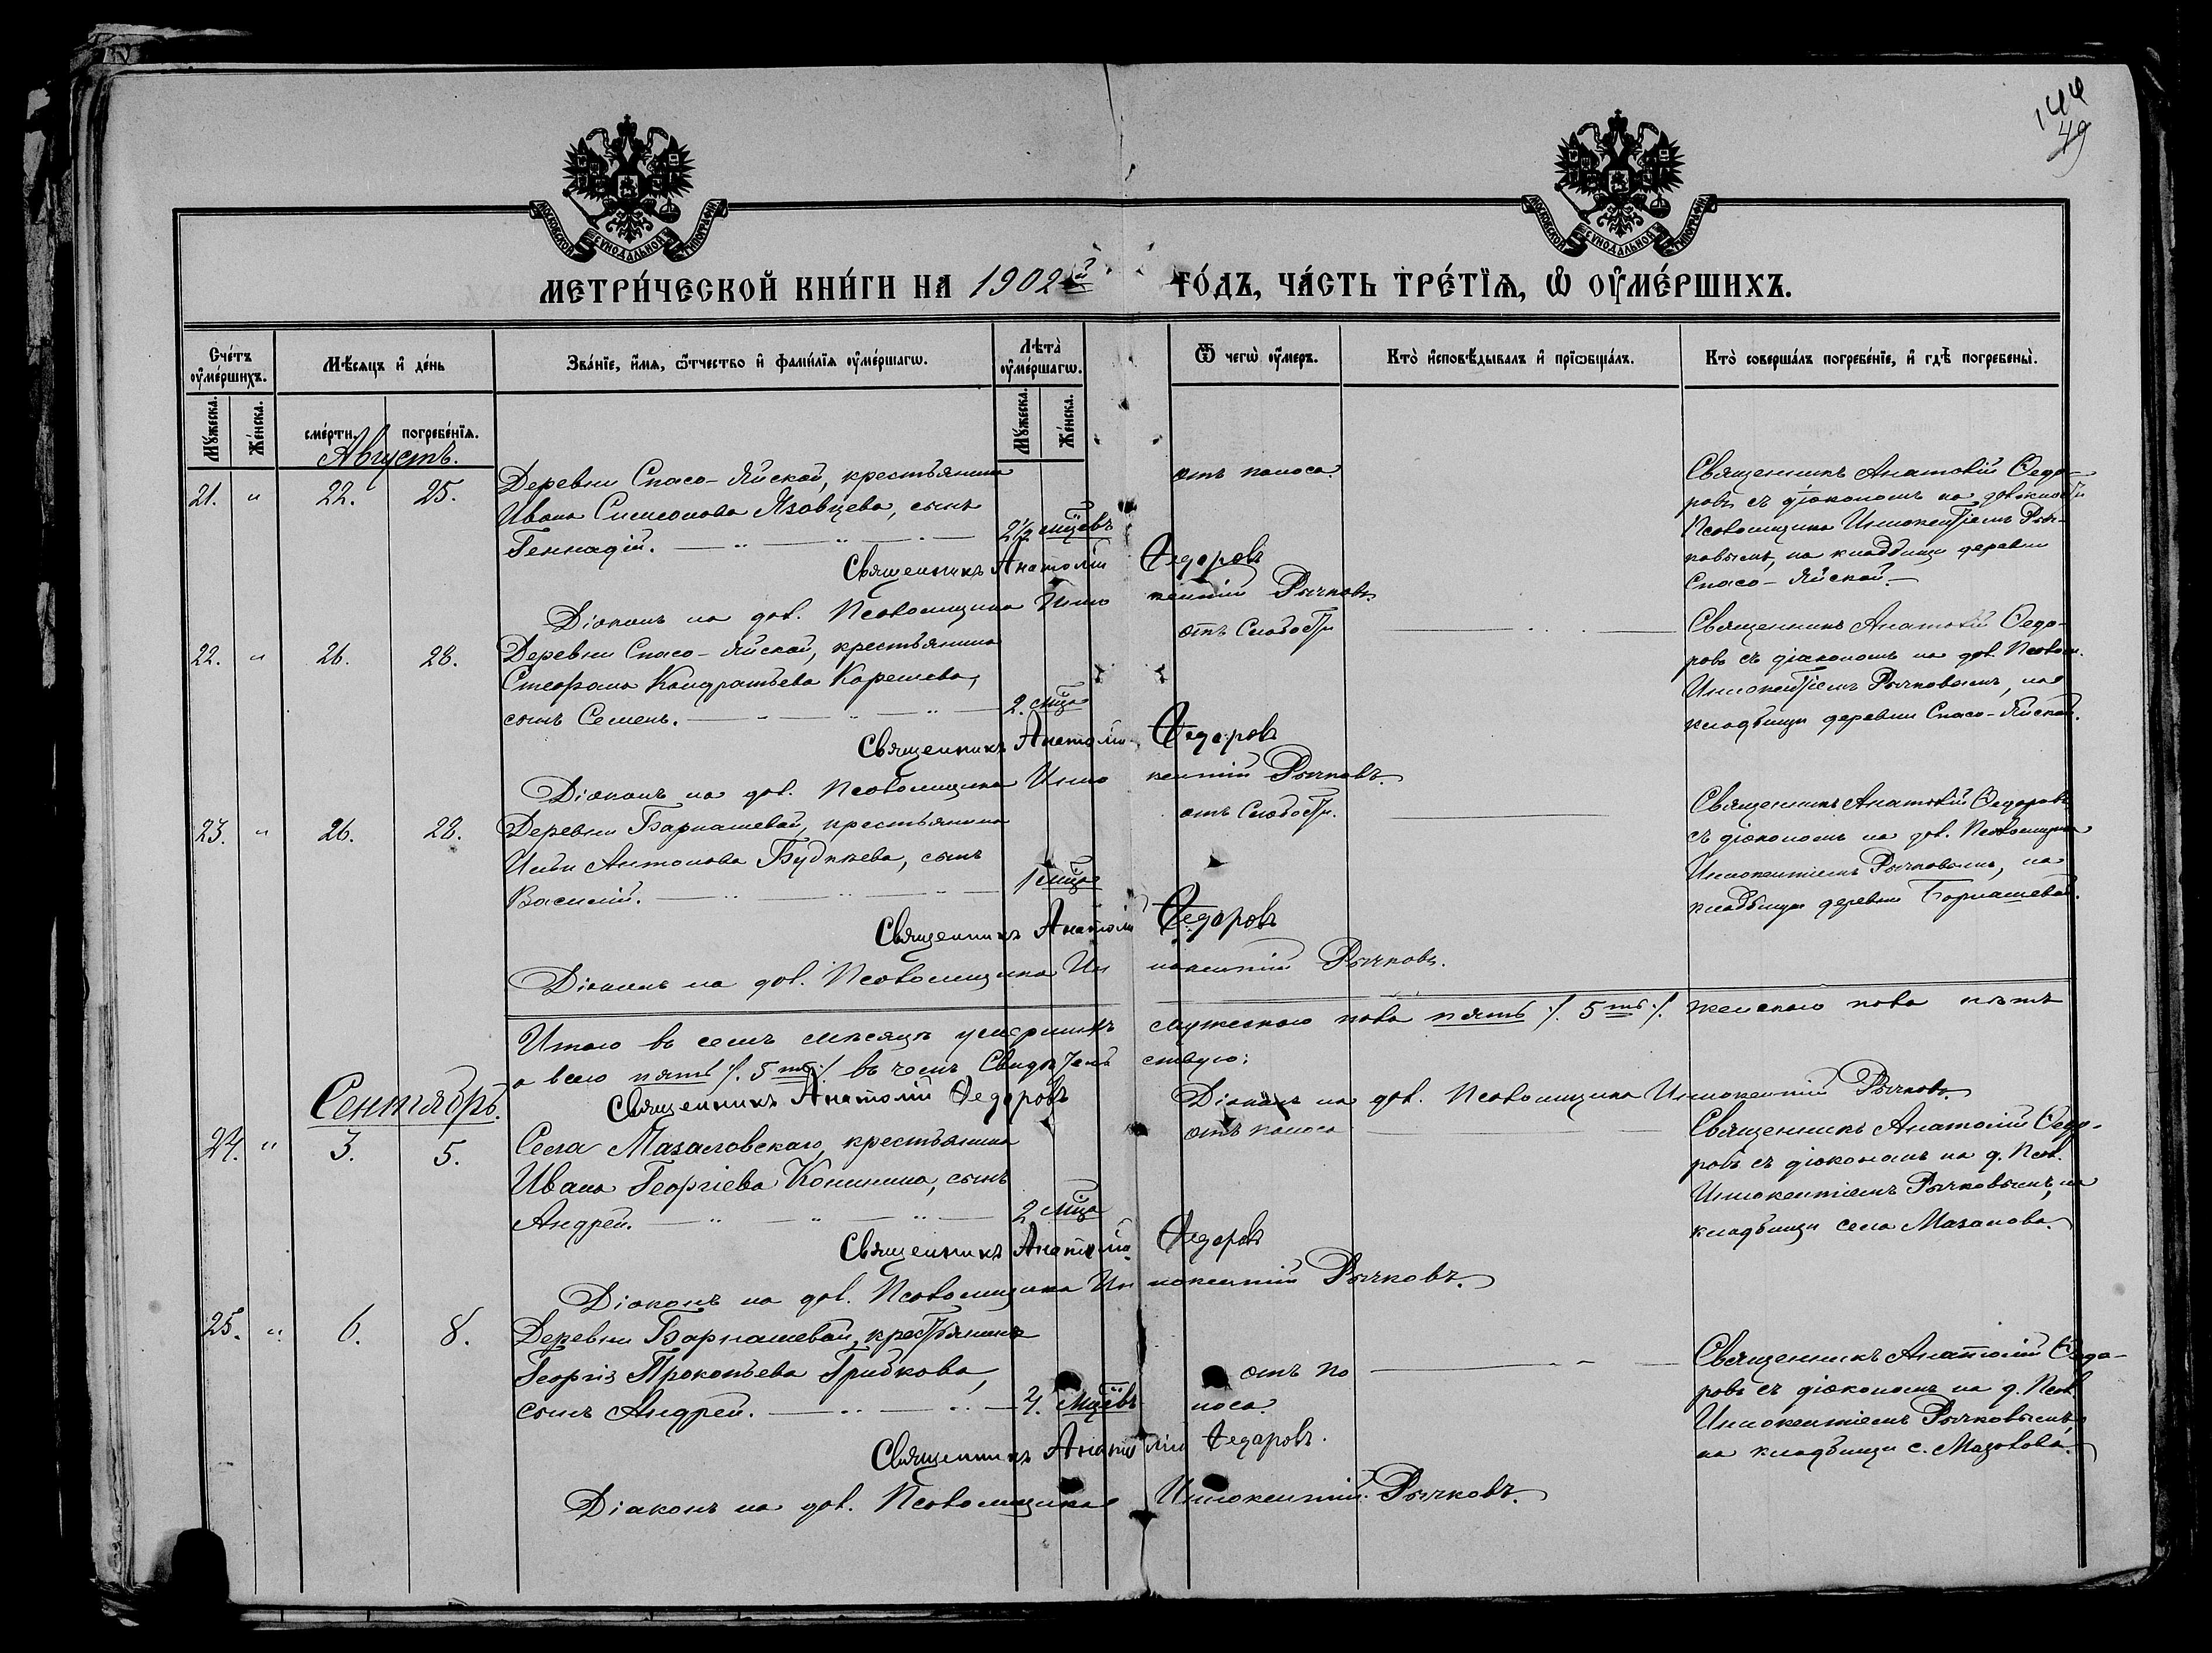 144
49
МОСКОВСКОЙ СѴНОДАЛЬНОЙ ТИПОГРАФІИ
МОСКОВСКОЙ СѴНОДАЛЬНОЙ ТИПОГРАФІИ
МЕТРИ́ЧЕСКОЙ КНИ́ГИ НА 1902й ГО́ДЪ, ЧА́СТЬ ТРЕ́ТЇѦ, Ѡ҆ ОУ҆МЕ́РШИХЪ.
Сче́тъ оу҆ме́ршихъ.
Мѣ́сяцъ и҆ де́нь
Зва́нїе, и҆́мѧ, ѻ҆́тчество и҆ фами́лїѧ оу҆ме́ршагѡ.
Лѣта̀ оу҆ме́ршагѡ.
Ѿ чегѡ̀ оу҆́меръ.
Кто̀ и҆сповѣ́дывалъ и҆ прїѡбща́лъ.
Кто̀ соверша́лъ погребе́нїе, и҆ гдѣ̀ погребены̀.
Мꙋ́жеска. Же́нска. сме́рти. погребе́нїѧ. Мꙋ́жеска. Же́нска.
Августъ.
21. " 22. 25. Деревни Спасо-Яйской, крестьянина
Ивана Симеонова Язовцева, сынъ
Геннадій. 2½ мцевъ
отъ поноса.
Священникъ Анатолій Ѳедо-
ровъ съ діакономъ на должности
Псаломщика Иннокентіемъ Рыч-
ковымъ, на кладбищѣ деревни
Спасо-Яйской.
Священникъ Анатолій Ѳедоровъ
Діаконъ на дол. Псаломщика Иннокентій Рычковъ.
22. " 26. 28. Деревни Спасо-Яйской, крестьянина
Стефана Кондратьева Корешева,
сынъ Семенъ. 2. мца
отъ слабости
Священникъ Анатолій Ѳедо-
ровъ съ діакономъ на дол. Псалом.
Иннокентіемъ Рычковымъ, на
кладбищѣ деревни Спасо-Яйской.
Священникъ Анатолій Ѳедоровъ
Діаконъ на дол. Псаломщика Иннокентій Рычковъ.
23. " 26. 28. Деревни Барнашевой, крестьянина
Ильи Антонова сынъ
Василій. 1 мца
отъ слабости.
Священникъ Анатолій Ѳедоровъ
съ діакономъ на дол. Псаломщика
Иннокентіемъ Рычковымъ, на
кладбищѣ деревни Барнашевой.
Священникъ Анатолій Ѳедоровъ
Діаконъ на дол. Псаломщика Иннокентій Рычковъ.
Итого въ семъ мѣсяцѣ умершихъ мужескаго пола пять /. 5ть./. женскаго пола нѣтъ
а всего пять /. 5ть./ въ чемъ Свидѣтельствую:
Священникъ Анатолій Ѳедоровъ
Діаконъ на дол. Псаломщика Иннокентій Рычковъ.
Сентябрь.
24. " 3. 5. Села Мазаловскаго, крестьянина
Ивана Георгіева Конинина, сынъ
Андрей. 2 мца
отъ поноса
Священникъ Анатолій Ѳедо-
ровъ съ діакономъ на д. Псал.
Иннокентіемъ Рычковымъ, на
кладбищѣ села Мазалова.
Священникъ Анатолій Ѳедоровъ
Діаконъ на дол. Псаломщика Иннокентій Рычковъ.
25. " 6. 8. Деревни Барнашевой, крестьянина
Георгія Прокопьева Грибкова,
сынъ Андрей. 4. мцевъ
отъ по
носа.
Священникъ Анатолій Ѳедо-
ровъ съ діакономъ на д. Псал.
Иннокентіемъ Рычковымъ
на кладбищѣ с. Мазалова.
Священникъ Анатолій Ѳедоровъ.
Діаконъ на дол. Псаломщика Иннокентій Рычковъ.